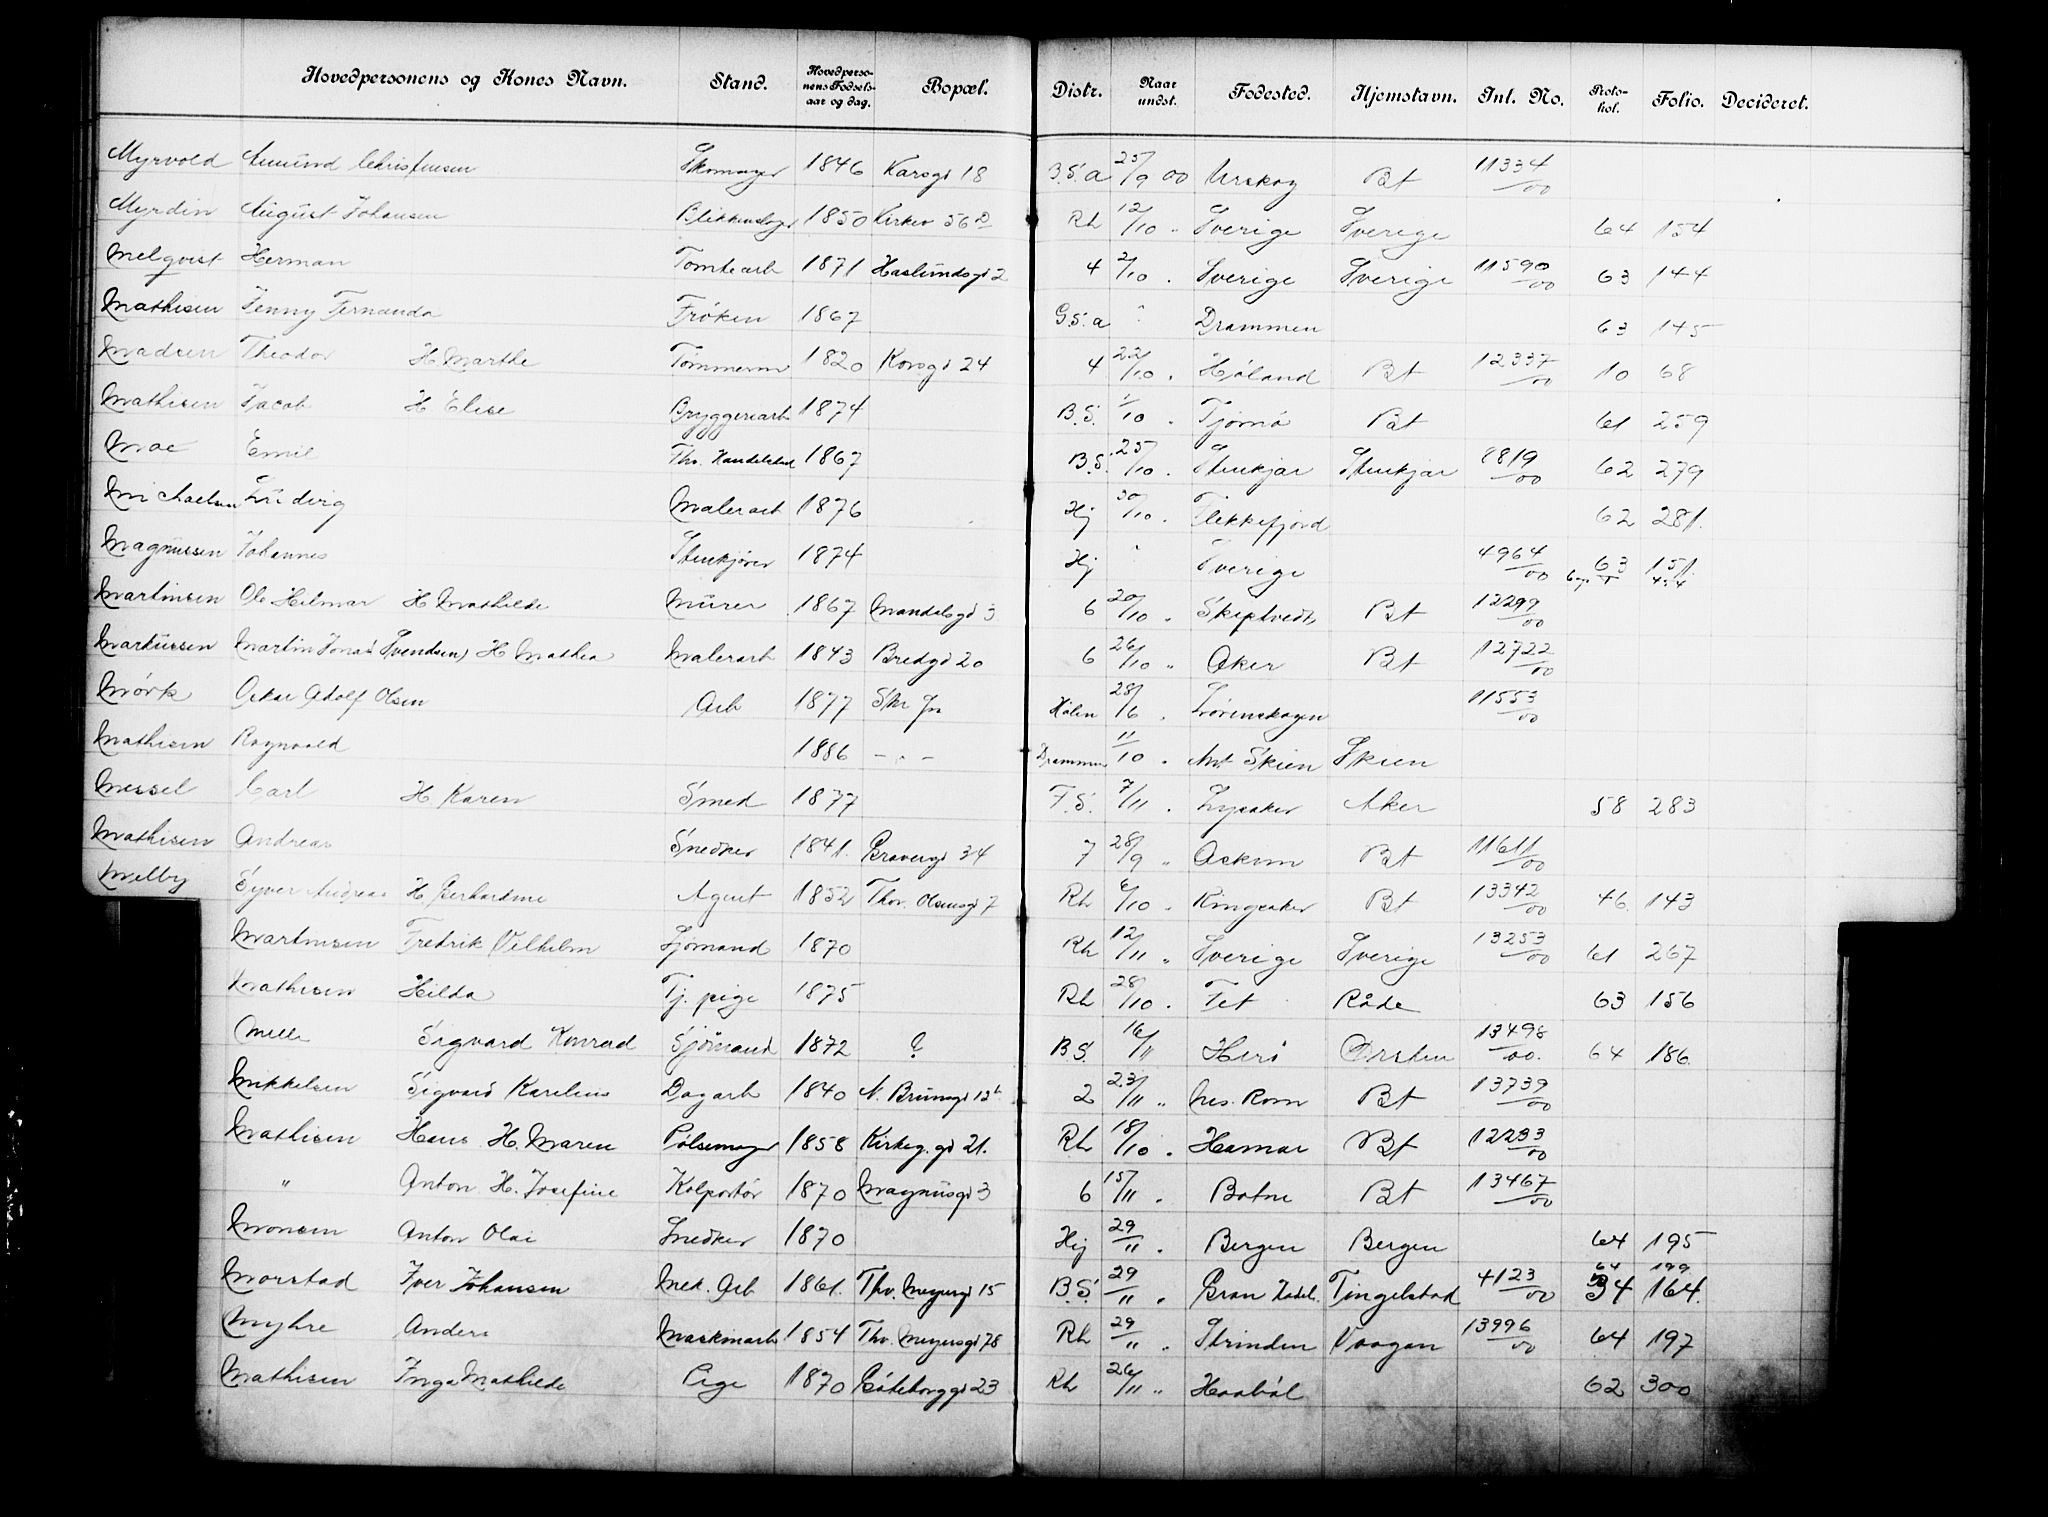 Hovedpersonens og Kones Navn. Stand. Hovedperso-nens Fødsels-aar og dag. Bopæl. Distr. Naar undst. Fødested. Hjemstavn. Inl. No. Proto-kol. Folio. Decideret.
Myrvold Amund Christensen Skomager 1846 Karsgd 18 B.S. a 25/9 00 Urskog Bt 11334/00
Myrdin August Johansen Blikkenslager 1850 Kirkev 56 D Rh 12/10 " Sverige Sverige 64 154
Melqvist Herman Tomtearb 1871 Haslundsgd 2 4 2/10 . Sverige Sverige 11590/00 63 144
Mathisen Jenny Fernanda Frøken 1867 G.S. a " Drammen 63 145
Madsen Theodor H. Marthe Tømmerm 1820 Korsgd 24 4 22/10 . Høland Bt 12337/00 10 68
Mathisen Jacob H Elise Bryggeriarb 1874 B.S. 1/10 . Tjømø Bt 61 259
Moe Emil Fhv. Handelsbud 1867 B.S. 25/10 . Stenkjær Stenkjær 8819/00 62 279
Michaelsen Ludvig Malerarb 1876 Hj 30/10 . Flekkefjord 62 281.
Magnussen Johannes Stenkjører 1874 Hj " Sverige 4964/00 63 151.
Martinsen Ole Hilmar H Mathilde Murer 1867 Mandalsgd 3 6 20/10 . Skiptvedt Bt 12299/00
Markussen Martin Jonas (Svendsen) H Mathea Malerarb 1843 Bredgd 20 6 26/10 " Aker Bt 12722/00
Mørk Oskar Adolf Olsen Arb 1877 Skr Jn Hølen 28/6 . Lørenskogen 11553/00
Mathisen Ragnvald 1886 - . - Drammen 11/10 . Ant Skien Skien
Messel Carl H Karen Smed 1877 F.S. 7/11 . Lysaker Aker 58 283
Mathisen Andreas Snedker 1841. Gravergd 34 7 28/9 " Askim Bt 11611/00
Melby Syver Andreas H Gerhardine Agent 1852 Thor. Olsensgd 7 Rh 6/10 . Ringsaker Bt 13342/00 46. 143
Martinsen Fredrik Vilhelm Sjømand 1870 Rh 12/11 " Sverige Sverige 13253/00 61 267
Mathisen Hilda Tj. pige 1875 Rh 28/10 . Fet Råde 63 156
Melle Sigvard Konrad Sjømand 1872 ? B.S. 16/11 Herø Ørsten 13498/00. 64 186
Mikkelsen Sigvard Karelius Dagarb 1840 N. Brunsgd 12 b 2 23/11 " Nes. Rom Bt 13739/00
Mathisen Hans H. Maren Pølsemager 1858 Kirkeg. gd 21. Rh 18/10 . Hamar Bt 12233/00
" Anton H. Josefine Kolportør 1870 Magnusgd 3 6 15/11 . Botne Bt 13467/00
Monsen Anton Olai Snedker 1870 Hj 29/11 . Bergen Bergen 64 195
64 199
Morstad Iver Johansen Mek. Arb 1861. Thv. Meyersgd 15 B.S. 29/11 " Gran Hadel. Tingelstad 4123/00 34 164.
Myhre Anders Maskinarb 1854 Thv. Meyersgd 78 Rh 29/11 " Strinden Vaagan 13996/00 64 197
Mathisen Inga Mathilde Pige 1870 Gøteborggd 23 Rh 26/11 " Haabøl 62 300